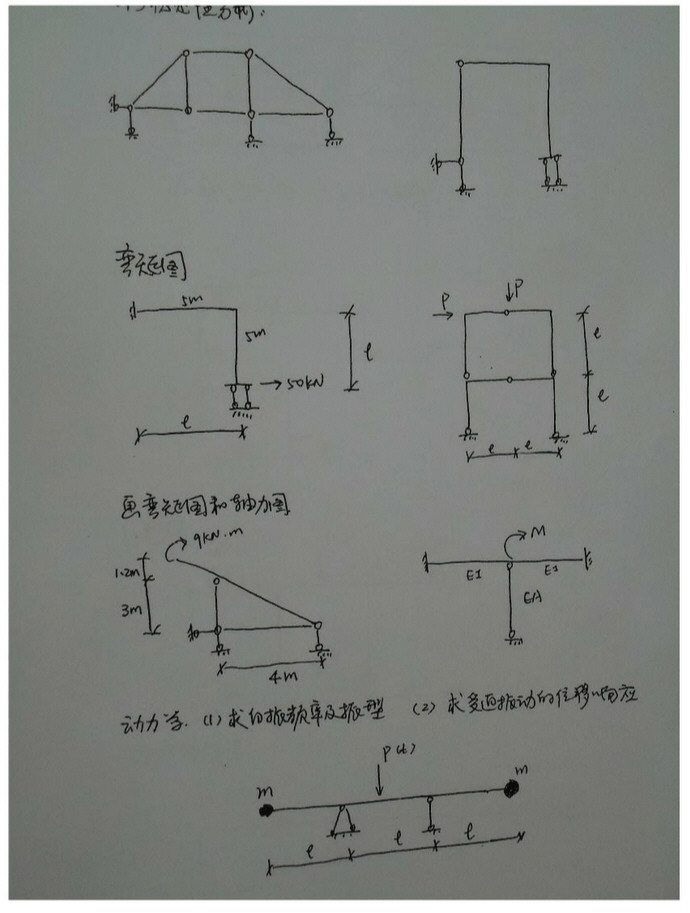 弯矩图
5m
5m
l
50kN
l
P
P
l
l
l
l
画弯矩图和轴力图
9kN.m
1.2m
3m
4m
M
EI
EI
EA
动力学. (1) 求自振频率及振型 (2) 求受迫振动的位移响应
P(t)
m
m
l
l
l